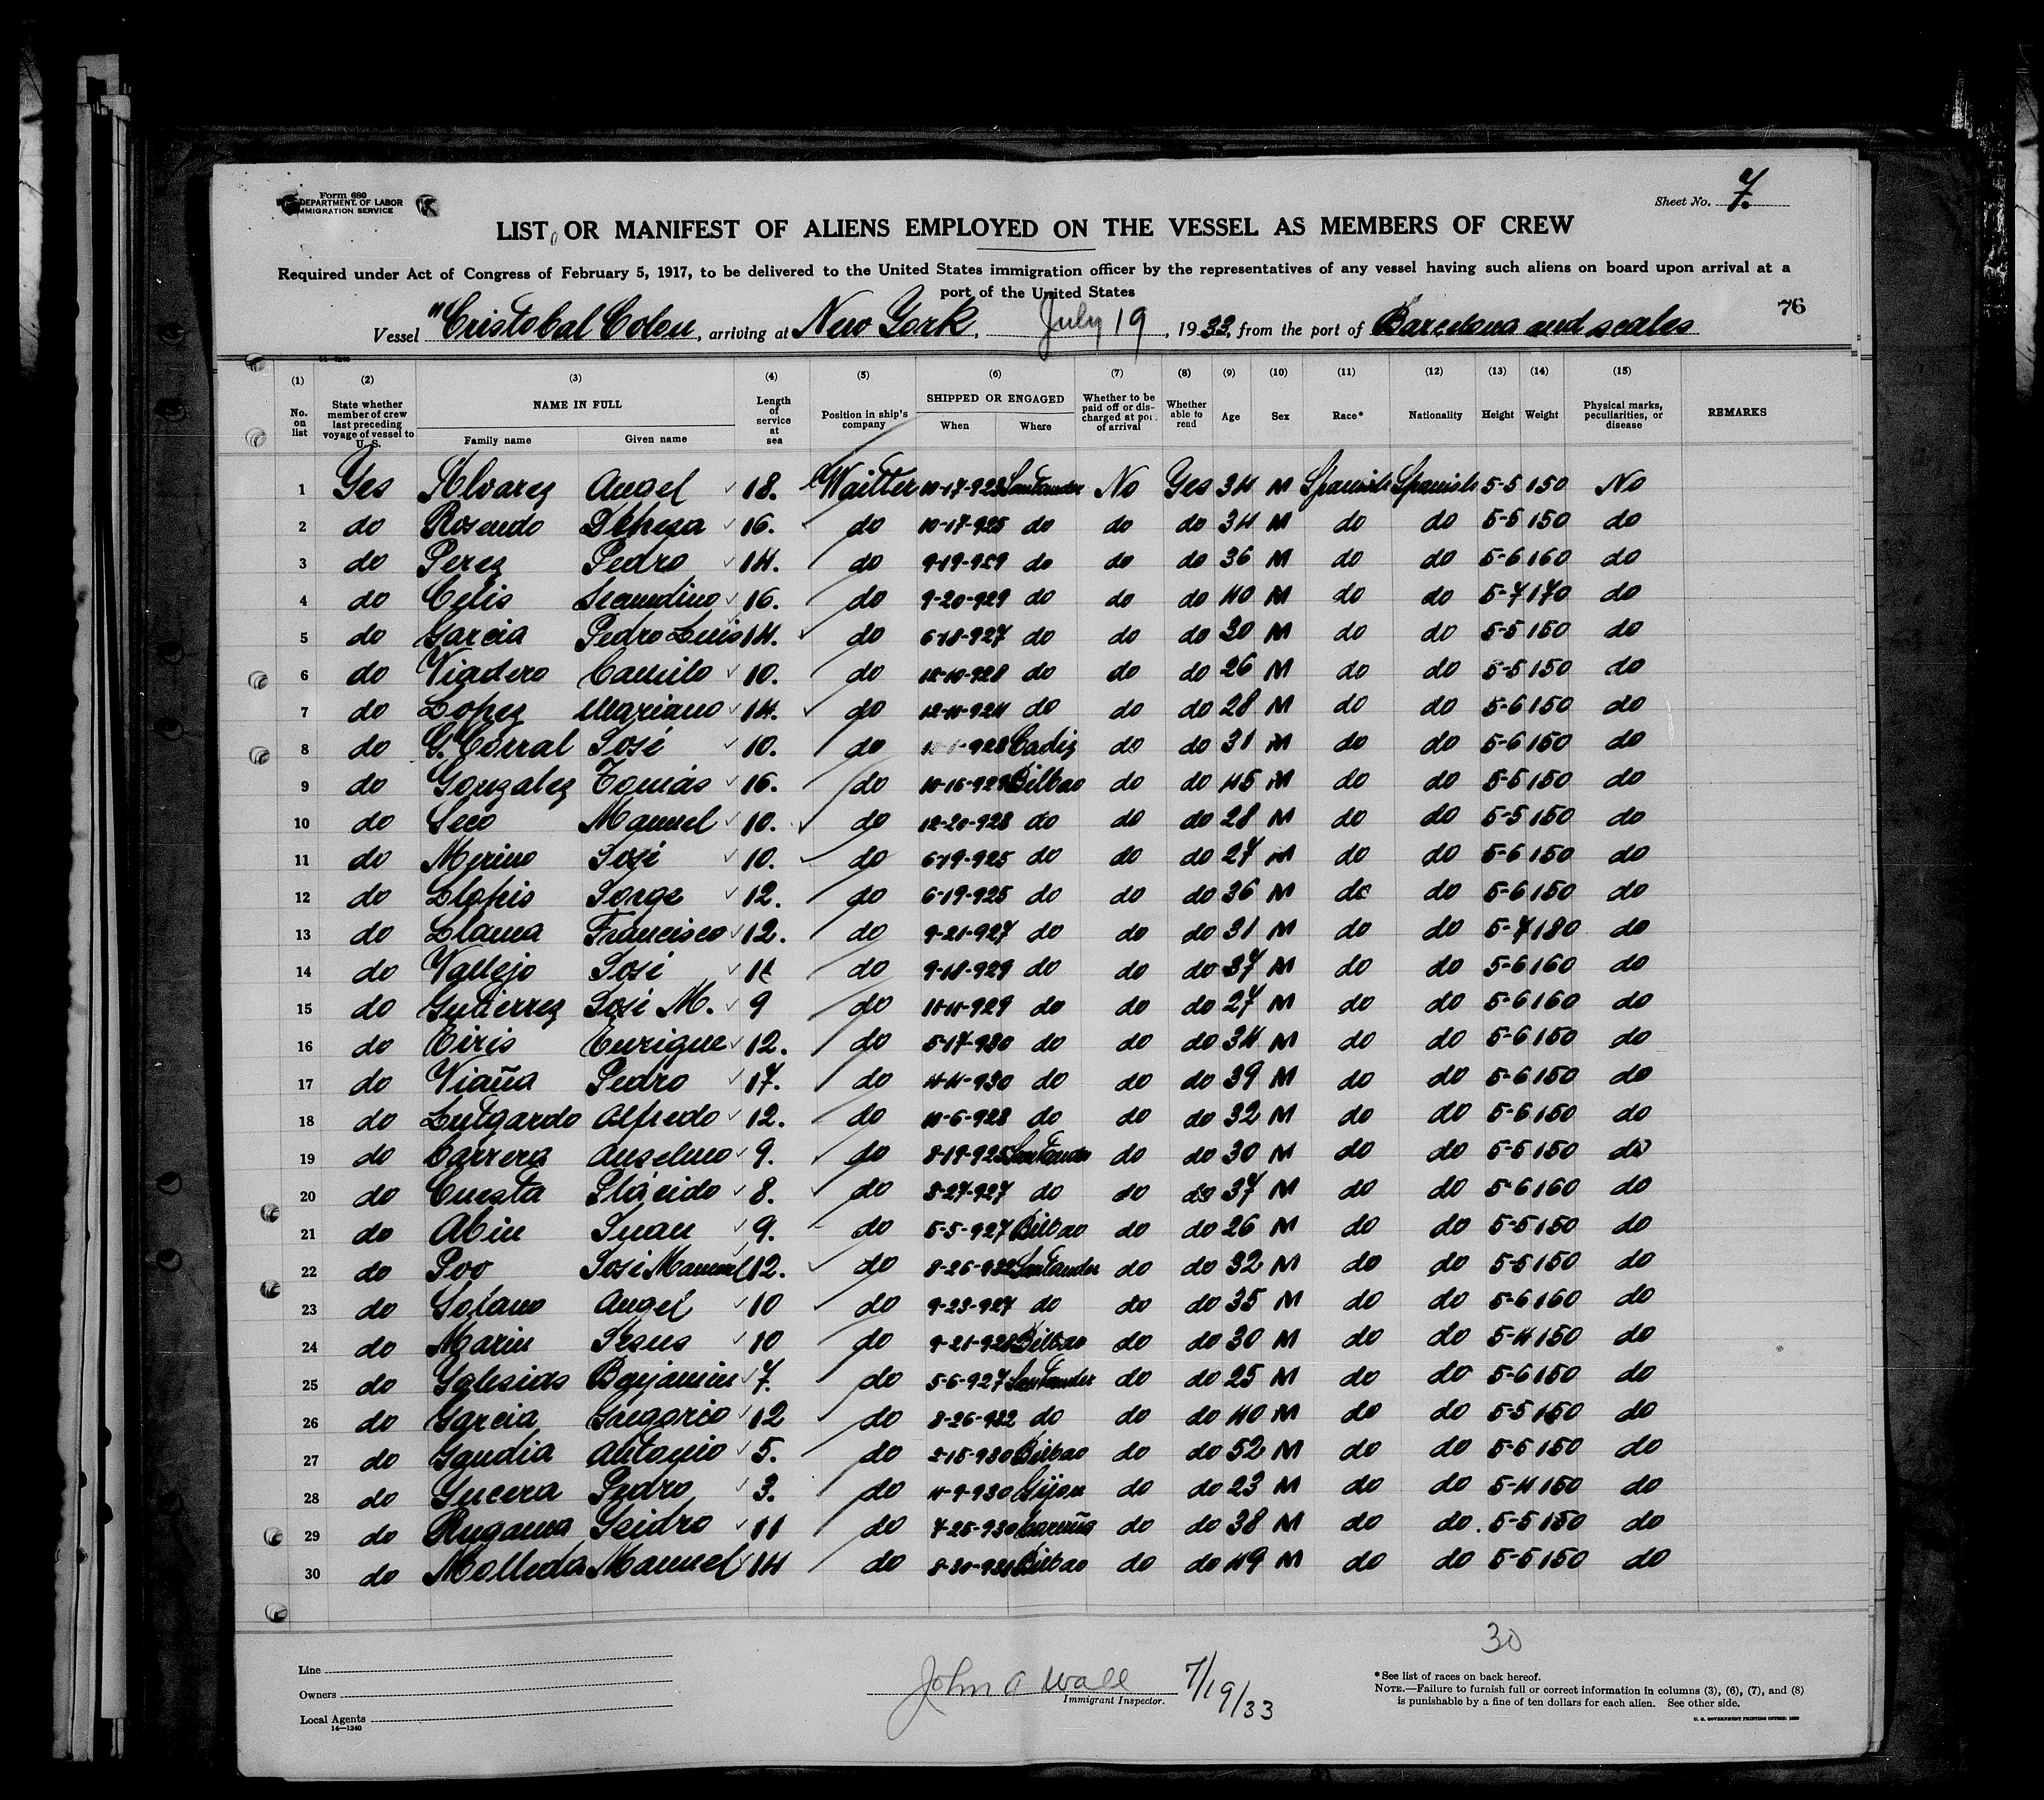 Form 680
DEPARTMENT OF LABOR
IMMIGRATION SERVICE
Sheet No. 7.
LIST OR MANIFEST OF ALIENS EMPLOYED ON THE VESSEL AS MEMBERS OF CREW
Required under Act of Congress of February 5, 1917, to be delivered to the United States immigration officer by the representatives of any vessel having such aliens on board upon arrival at a
port of the United States
76
Vessel "Cristobal Colon, arriving at New York, July 19, 1933, from the port of Barcelona and scales
(1) (2) (3) (4) (5) (6) (7) (8) (9) (10) (11) (12) (13) (14) (15)
No. on list State whether member of crew last preceding voyage of vessel to U. S. NAME IN FULL Family name Given name Length of service at sea Position in ship's company SHIPPED OR ENGAGED When Where Whether to be paid off or discharged at port of arrival Whether able to read Age Sex Race* Nationality Height Weight Physical marks, peculiarities, or disease REMARKS
1 Yes Alvarez Angel 18. Waitter 10-17-923 Santander No Yes 34 M Spanish Spanish 5-5 150 No
2 do Rosendo 16. do 10-17-925 do do do 34 M do do 5-5 150 do
3 do Perez Pedro 14. do 9-19-929 do do do 36 M do do 5-6 160 do
4 do Celis Secundino 16. do 9-20-929 do do do 40 M do do 5-7 170 do
5 do Garcia Pedro Luis 14. do 6-18-927 do do do 30 M do do 5-5 150 do
6 do Viadero Camilo 10. do do do do 26 M do do 5-5 150 do
7 do Lopez Mariano 14. do 12-11-924 do do do 28 M do do 5-6 150 do
8 do G. Corral José 10. do Cadiz do do 31 M do do 5-6 150 do
9 do Gonzalez Tomás 16. do 10-16-929 Bilbao do do 45 M do do 5-5 150 do
10 do Seco Manuel 10. do 12-20-928 do do do 28 M do do 5-5 150 do
11 do Merino José 10. do 6-19-925 do do do 27 M do do 5-6 150 do
12 do Llopis Jorge 12. do 6-19-925 do do do 36 M do do 5-6 150 do
13 do Llama Francisco 12. do 9-21-927 do do do 31 M do do 5-7 180 do
14 do Vallejo José 11 do 9-18-929 do do do 37 M do do 5-6 160 do
15 do Gutierrez José M. 9 do 11-11-929 do do do 27 M do do 5-6 160 do
16 do Eiris Enrique 12. do 5-17-930 do do do 34 M do do 5-6 150 do
17 do Viaña Pedro 17. do 11-11-930 do do do 39 M do do 5-6 150 do
18 do Lutgardo Alfredo 12. do 10-6-928 do do do 32 M do do 5-6 150 do
19 do Carrera Anselmo 9. do 8-19-925 Santander do do 30 M do do 5-5 150 do
20 do Cuesta Plácido 8. do 8-27-927 do do do 37 M do do 5-6 160 do
21 do Abin Juan 9. do 5-5-927 Bilbao do do 26 M do do 5-5 150 do
22 do Poo José Manuel 12. do 8-26-932 Santander do do 32 M do do 5-5 150 do
23 do Solano Angel 10 do 9-23-927 do do do 35 M do do 5-6 160 do
24 do Marin Jesus 10 do 9-21-928 Bilbao do do 30 M do do 5-4 150 do
25 do Yglesias Benjamin 7. do 5-6-927 Santander do do 25 M do do 5-6 150 do
26 do Garcia Gregorio 12 do 8-26-932 do do do 40 M do do 5-5 150 do
27 do Gandia Antonio 5. do 2-15-930 Bilbao do do 52 M do do 5-5 150 do
28 do Yucera Pedro 3. do 11-9-930 Gijon do do 23 M do do 5-4 150 do
29 do Rugama Isidro 11 do 7-25-930 Coruña do do 38 M do do 5-5 150 do
30 do Molleda Manuel 14 do Bilbao do do 49 M do do 5-5 150 do
30
Line
Owners
Local Agents
14—1240
John A Wall 7/19/33
Immigrant Inspector.
*See list of races on back hereof.
NOTE.—Failure to furnish full or correct information in columns (3), (6), (7), and (8)
is punishable by a fine of ten dollars for each alien. See other side.